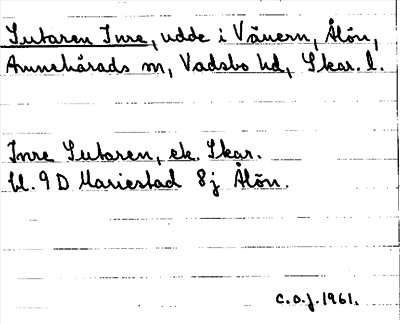 Sutaren Inre, udde i Vänern, Ålön,
Amnehärads sn, Vadsbo hd, Skar. l.
Inre Sutaren, ek. Skar.
bl. 9 D Mariestad 8j Ålön.
C.O.J. 1961.